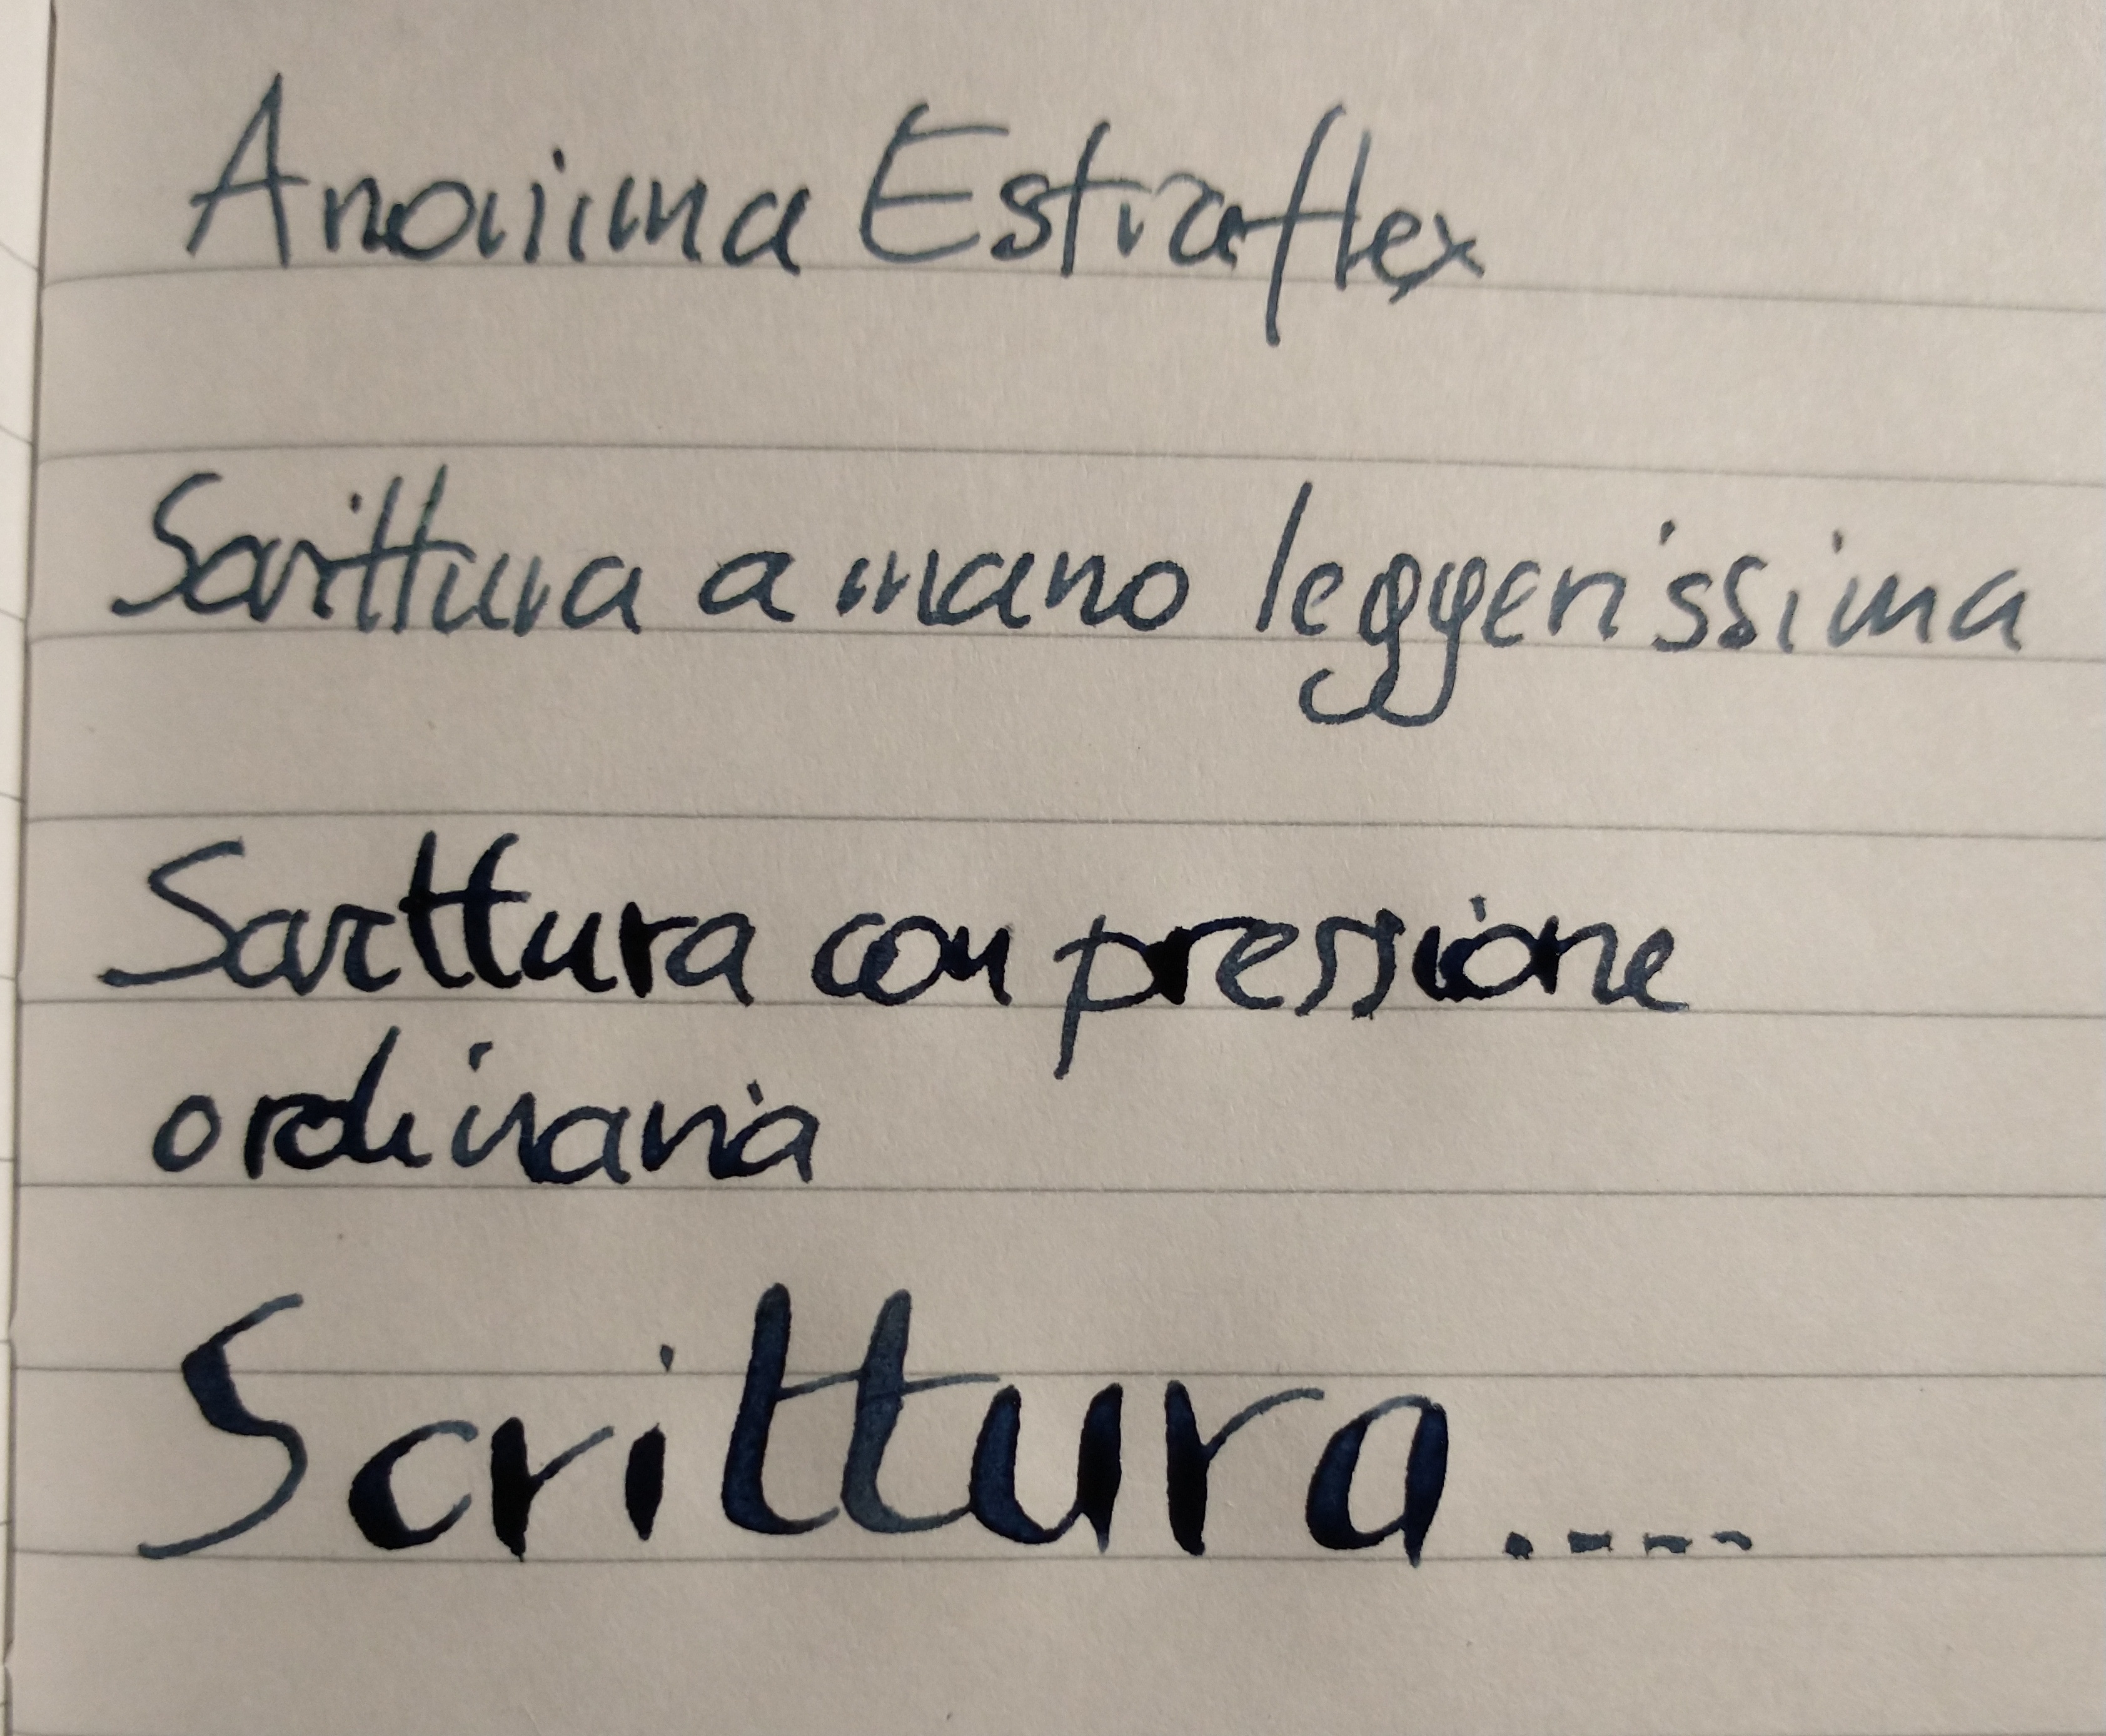 Anonima Estraflex
Scrittura a mano leggerissima
Scrittura con pressione
ordinaria
Scrittura.....